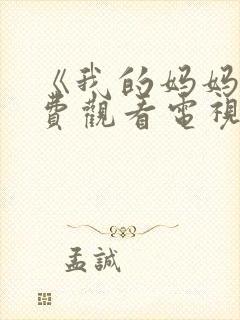 《我的妈妈
費觀看電視
孟誠